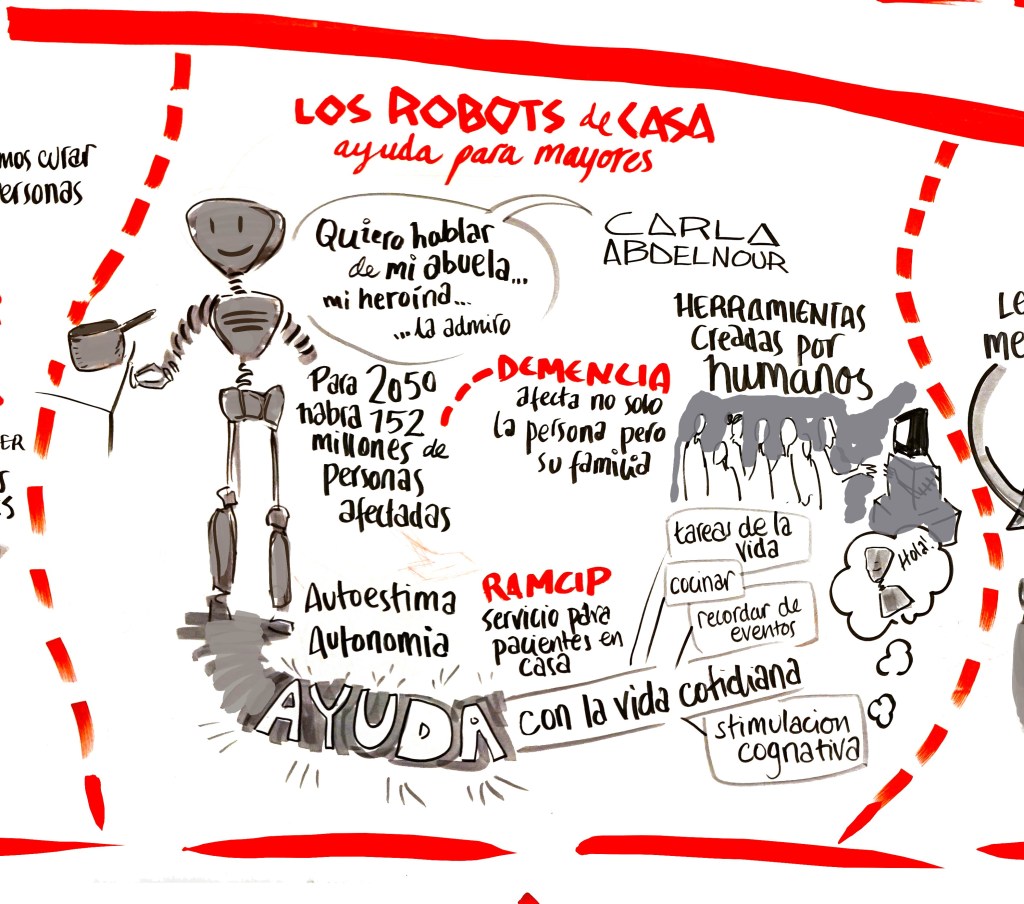 LOS ROBOTS de CASA
ayuda para mayores
mos curar
ersonas
Quiero hablar
de mi abuela...
mi heroína...
...la admiro
CARLA
ABDELNOUR
HERRAMIENTAS
creadas por
humanos
Para 2050
habra 152
millones de
personas
afectadas
DEMENCIA
afecta no solo
la persona pero
su familia
Autoestima
Autonomia
RAMCIP
servicio para
pacientes en
casa
tareas de la
vida
cocinar
recordar de
eventos
Hola!
AYUDA
con la vida cotidiana
stimulacion
cognativa
ER
S
ES
LE
me